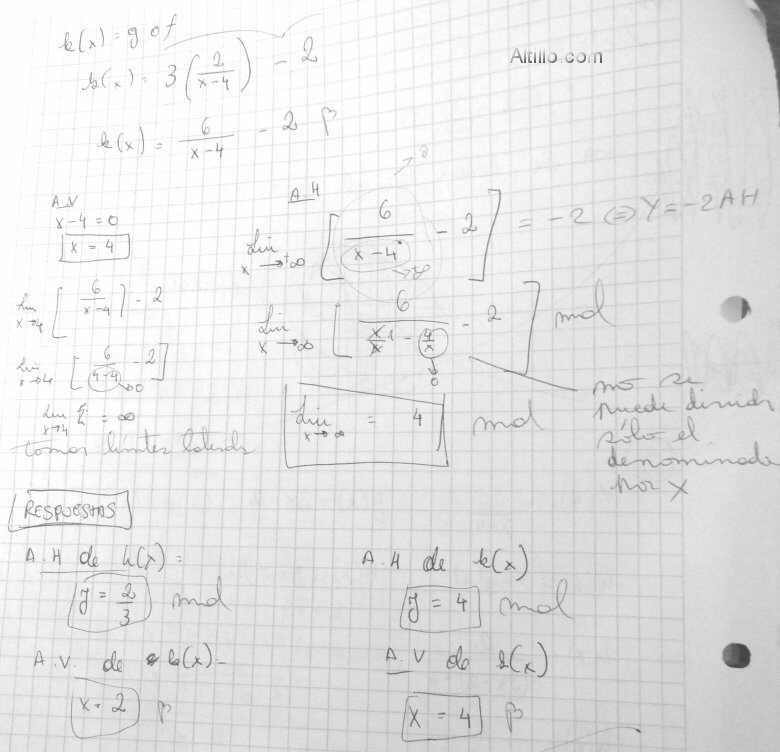 k(x) = g o f
Altillo.com
k(x) = 3 (2/(x-4)) - 2
k(x) = 6/(x-4) - 2 B
A.V
x-4=0
x = 4
A.H
Lim x→+∞ [6/(x-4) - 2] = -2 ⇔ Y=-2 AH
Lim x→4 [6/(x-4)] - 2
Lim x→∞ [6/(x/x 1 - 4/x) - 2] mal
→0
Lim x→4 [6/(4-4) - 2]
→0
Lim x→4 = ∞
tomar límites laterales
Lim x→∞ = 4 mal
no se
puede dividir
sólo el
denominador
por x
RESPUESTAS
A.H de h(x) =
y = 2/3 mal
A.V. de h(x)-
x = 2 B
A.H de k(x)
y = 4 mal
A.V de k(x)
x = 4 B